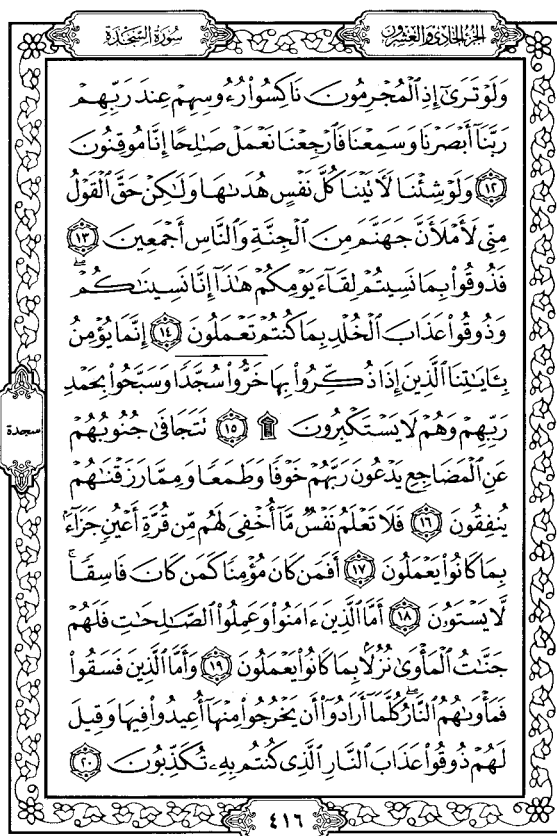 الجزء الحادي والعشرون
سورة السجدة
وَلَوْ تَرَىٰٓ إِذِ ٱلْمُجْرِمُونَ نَاكِسُوا۟ رُءُوسِهِمْ عِندَ رَبِّهِمْ
رَبَّنَآ أَبْصَرْنَا وَسَمِعْنَا فَٱرْجِعْنَا نَعْمَلْ صَٰلِحًا إِنَّا مُوقِنُونَ
﴿١٢﴾ وَلَوْ شِئْنَا لَءَاتَيْنَا كُلَّ نَفْسٍ هُدَىٰهَا وَلَٰكِنْ حَقَّ ٱلْقَوْلُ
مِنِّى لَأَمْلَأَنَّ جَهَنَّمَ مِنَ ٱلْجِنَّةِ وَٱلنَّاسِ أَجْمَعِينَ ﴿١٣﴾
فَذُوقُوا۟ بِمَا نَسِيتُمْ لِقَآءَ يَوْمِكُمْ هَٰذَآ إِنَّا نَسِينَٰكُمْ ۖ
وَذُوقُوا۟ عَذَابَ ٱلْخُلْدِ بِمَا كُنتُمْ تَعْمَلُونَ ﴿١٤﴾ إِنَّمَا يُؤْمِنُ
بِـَٔايَٰتِنَا ٱلَّذِينَ إِذَا ذُكِّرُوا۟ بِهَا خَرُّوا۟ سُجَّدًا وَسَبَّحُوا۟ بِحَمْدِ
رَبِّهِمْ وَهُمْ لَا يَسْتَكْبِرُونَ ۩ ﴿١٥﴾ تَتَجَافَىٰ جُنُوبُهُمْ
سجدة
عَنِ ٱلْمَضَاجِعِ يَدْعُونَ رَبَّهُمْ خَوْفًا وَطَمَعًا وَمِمَّا رَزَقْنَٰهُمْ
يُنفِقُونَ ﴿١٦﴾ فَلَا تَعْلَمُ نَفْسٌ مَّآ أُخْفِىَ لَهُم مِّن قُرَّةِ أَعْيُنٍ جَزَآءًۢ
بِمَا كَانُوا۟ يَعْمَلُونَ ﴿١٧﴾ أَفَمَن كَانَ مُؤْمِنًا كَمَن كَانَ فَاسِقًا ۚ
لَّا يَسْتَوُۥنَ ﴿١٨﴾ أَمَّا ٱلَّذِينَ ءَامَنُوا۟ وَعَمِلُوا۟ ٱلصَّٰلِحَٰتِ فَلَهُمْ
جَنَّٰتُ ٱلْمَأْوَىٰ نُزُلًۢا بِمَا كَانُوا۟ يَعْمَلُونَ ﴿١٩﴾ وَأَمَّا ٱلَّذِينَ فَسَقُوا۟
فَمَأْوَىٰهُمُ ٱلنَّارُ ۖ كُلَّمَآ أَرَادُوٓا۟ أَن يَخْرُجُوا۟ مِنْهَآ أُعِيدُوا۟ فِيهَا وَقِيلَ
لَهُمْ ذُوقُوا۟ عَذَابَ ٱلنَّارِ ٱلَّذِى كُنتُم بِهِۦ تُكَذِّبُونَ ﴿٢٠﴾
٤١٦